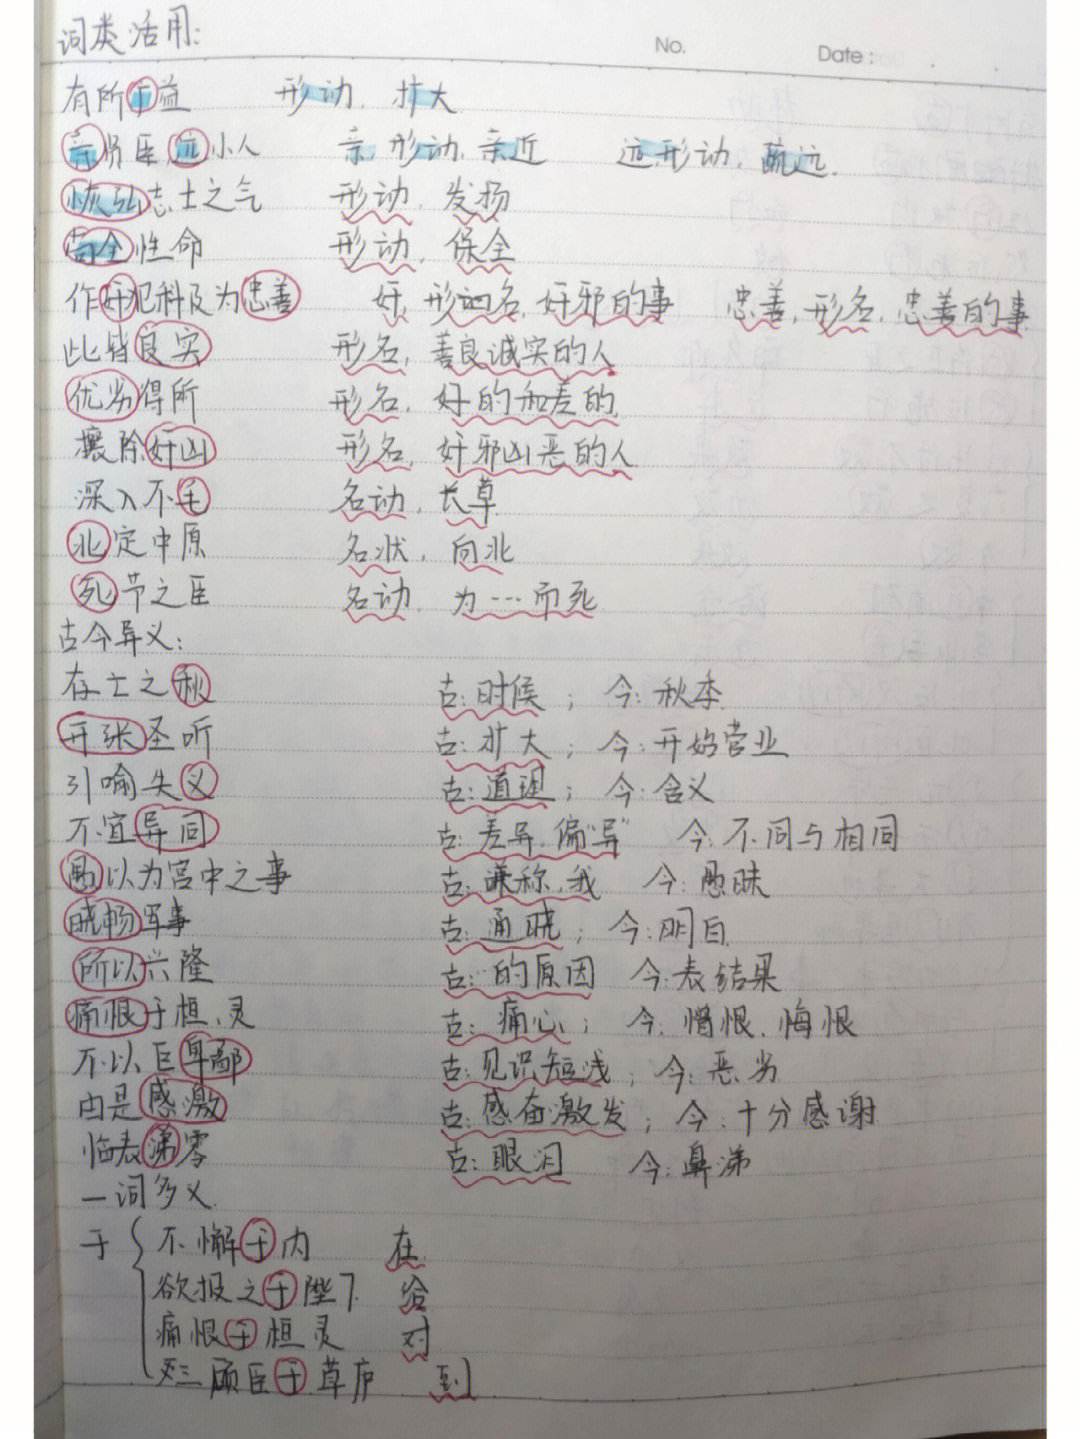 词类活用:
No. Date:
有所广益 形动, 扩大
亲贤臣远小人 亲, 形动, 亲近 远, 形动, 疏远.
恢弘志士之气 形动, 发扬
苟全性命 形动, 保全
作奸犯科及为忠善 奸, 形名, 奸邪的事 忠善, 形名, 忠善的事
此皆良实 形名, 善良诚实的人
优劣得所 形名, 好的和差的
攘除奸凶 形名, 奸邪凶恶的人
深入不毛 名动, 长草
北定中原 名状, 向北
死节之臣 名动, 为…而死
古今异义:
存亡之秋 古: 时候; 今: 秋季
开张圣听 古: 扩大; 今: 开始营业
引喻失义 古: 道理; 今: 含义
不宜异同 古: 差异, 偏“异” 今: 不同与相同
愚以为宫中之事 古: 谦称, 我 今: 愚昧
晓畅军事 古: 通晓; 今: 明白
所以兴隆 古: …的原因 今: 表结果
痛恨于桓、灵 古: 痛心; 今: 憎恨、悔恨
不以臣卑鄙 古: 见识短浅; 今: 恶劣
由是感激 古: 感奋激发; 今: 十分感谢
临表涕零 古: 眼泪 今: 鼻涕
一词多义
于 { 不懈于内 在
欲报之于陛下 给
痛恨于桓灵 对
三顾臣于草庐 到